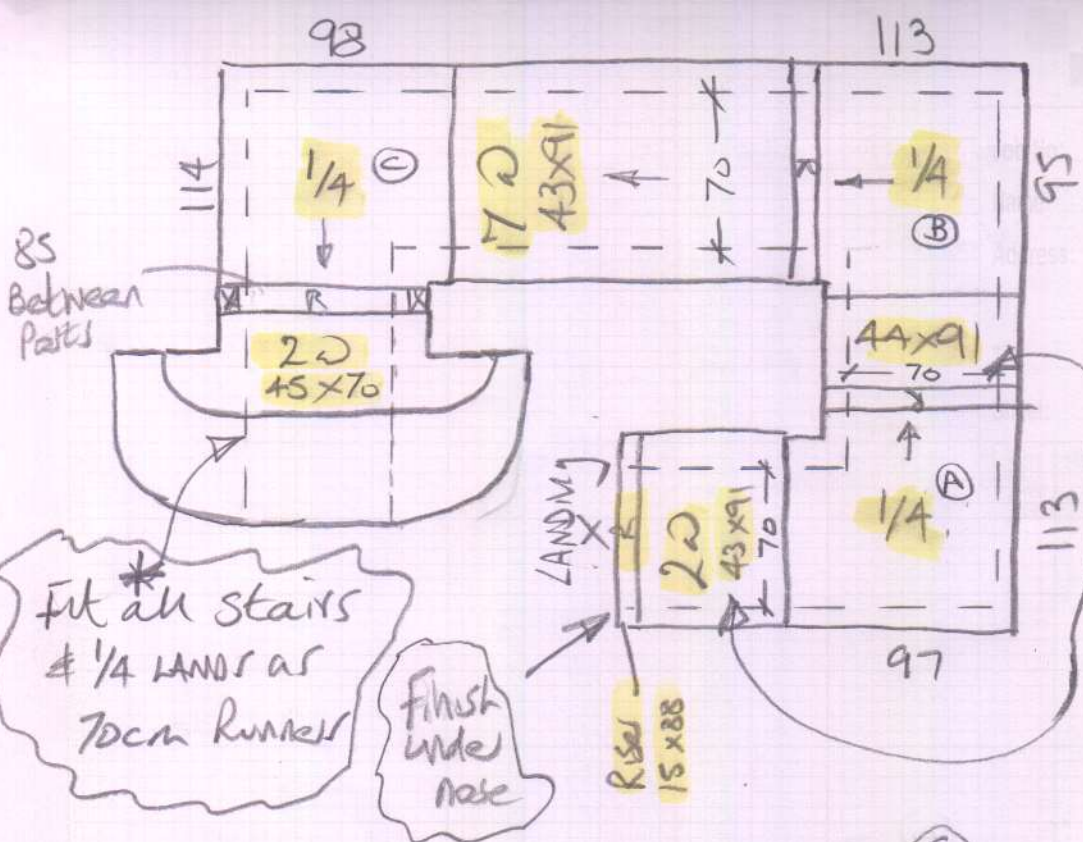 98
113
114
1/4 C
7 @
43x91
70
R
1/4
B
95
85
Between
Posts
R
2 @
45x70
44x91
70
LANDING
X
R
2 @
43x91
70
1/4 A
113
97
Riser
15x88
* Fit all stairs
& 1/4 LANDS as
70cm Runners
Finish
under
nose